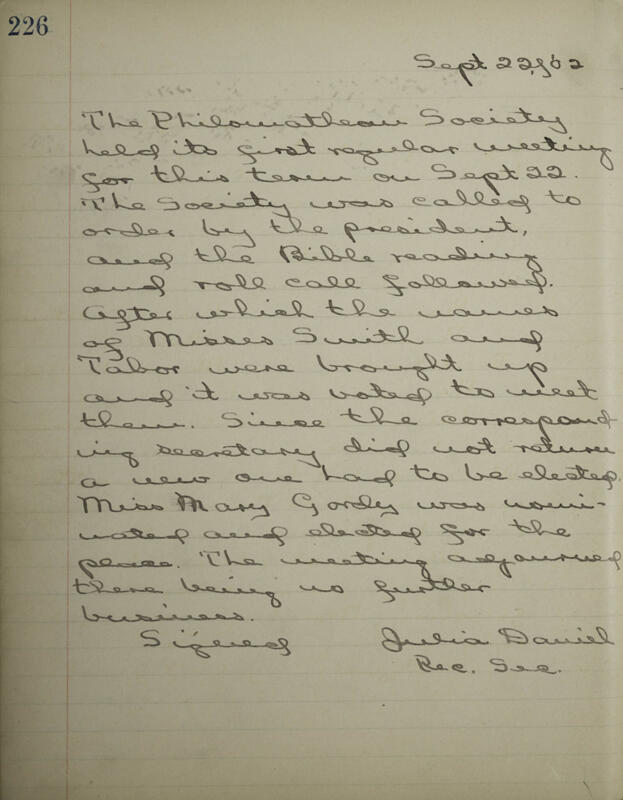 226
Sept 22, '02
The Philomathean Society
held its first regular meeting
for this term on Sept 22.
The Society was called to
order by the president,
and the Bible reading
and roll call followed.
After which the names
of Misses Smith and
Tabor were brought up
and it was voted to meet
them. Since the correspond
ing secretary did not return
a new one had to be elected.
Miss Mary Gordy was nomi-
nated and elected for the
place. The meeting adjourned
there being no further
business.
Signed Julia Daniel
Rec. Sec.